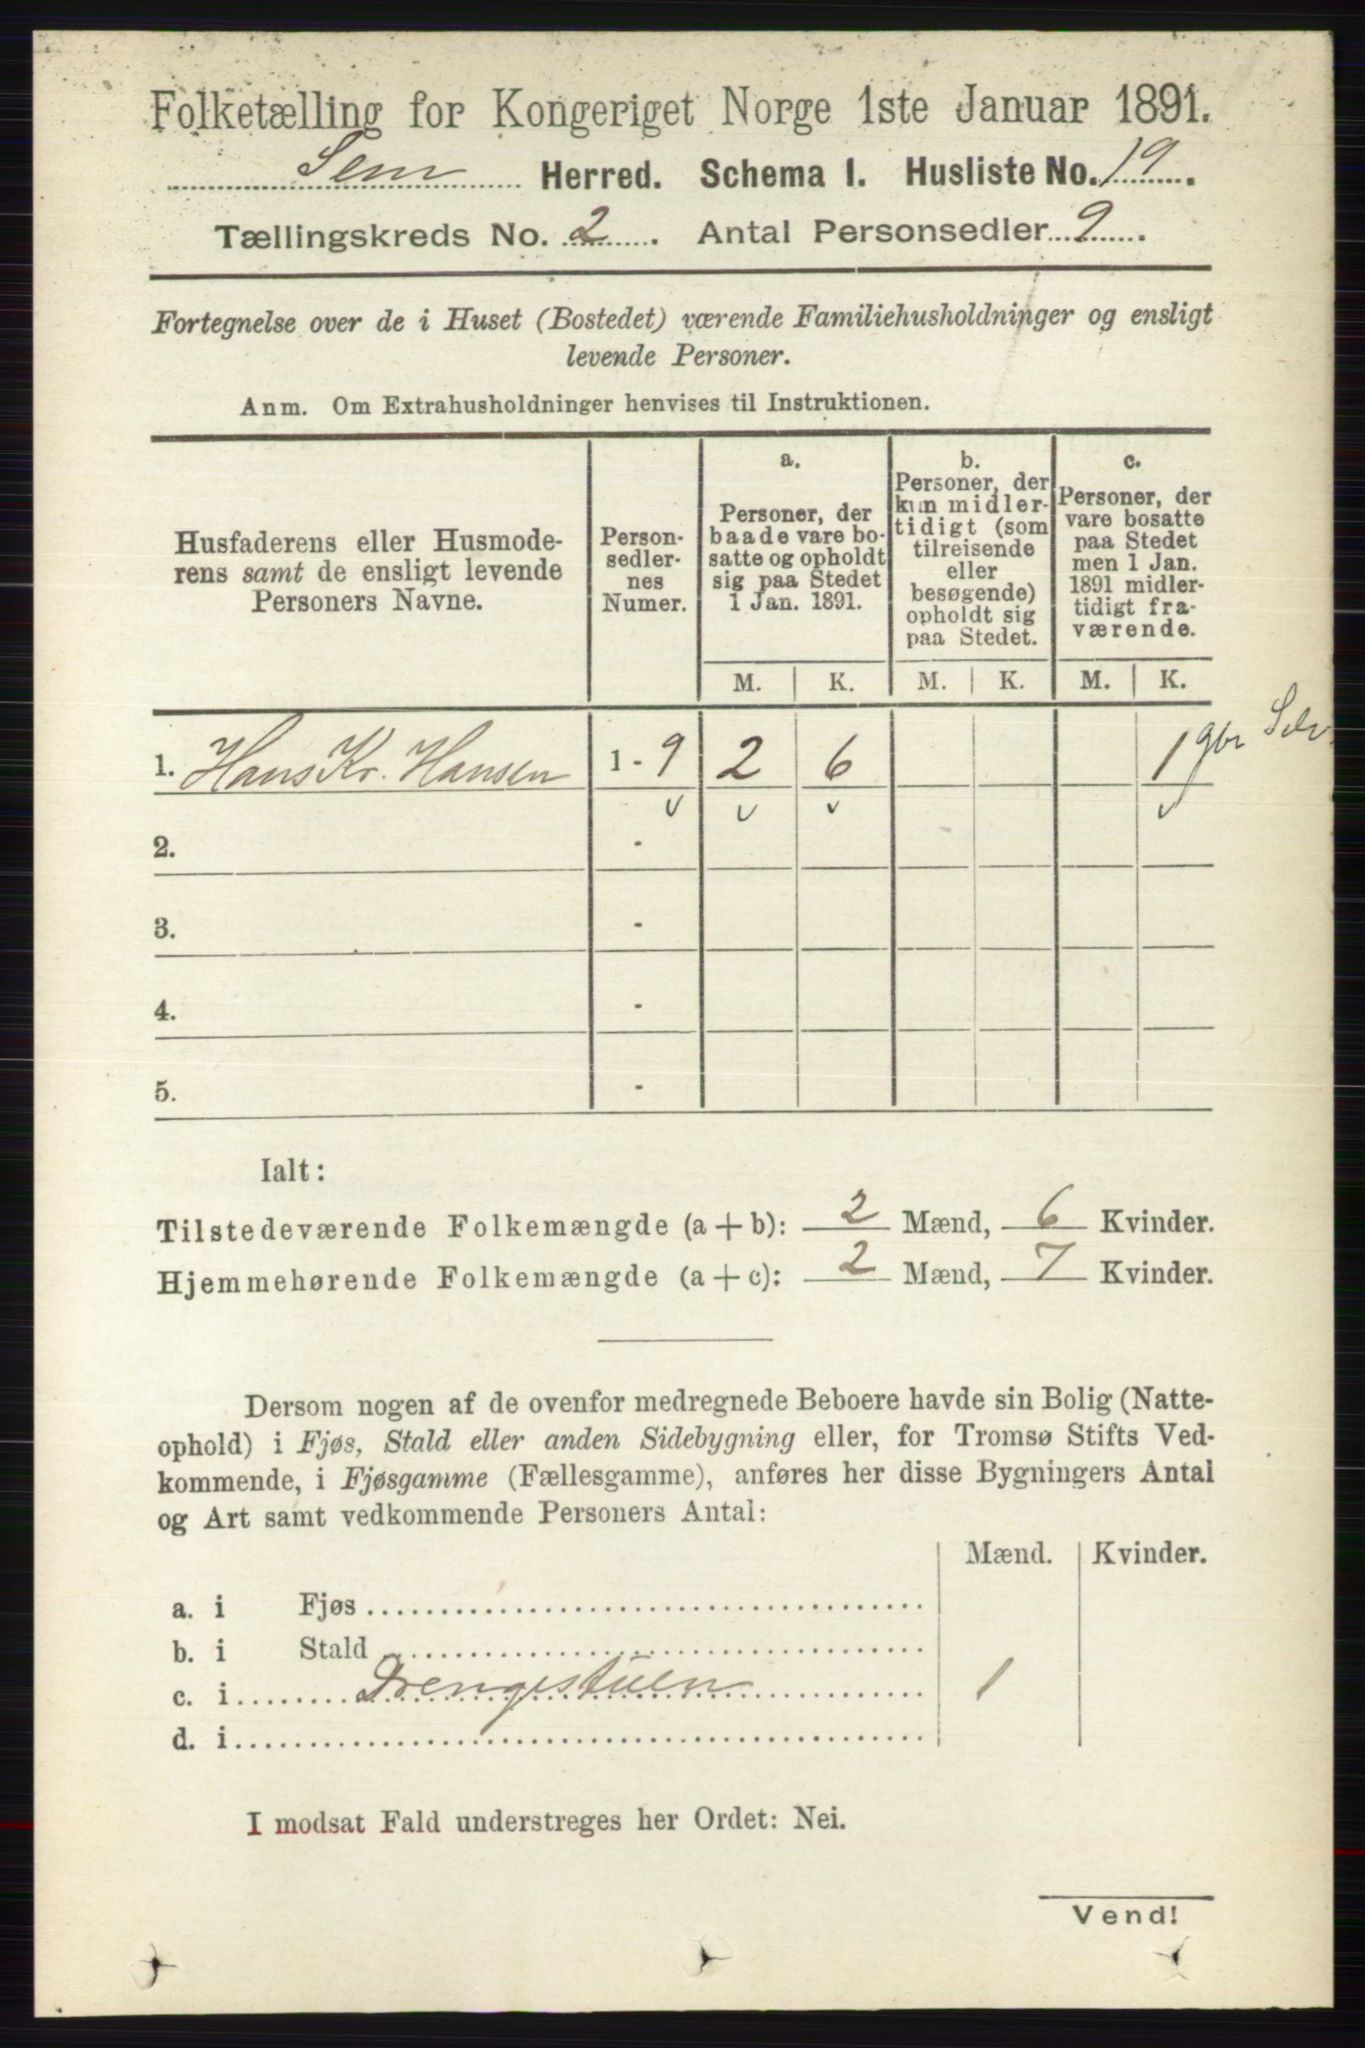 Folketælling for Kongeriget Norge 1ste Januar 1891.
Sem Herred. Schema 1. Husliste No. 19.
Tællingskreds No. 2. Antal Personsedler 9.
Fortegnelse over de i Huset (Bostedet) værende Familiehusholdninger og ensligt
levende Personer.
Anm. Om Extrahusholdninger henvises til Instruktionen.
Husfaderens eller Husmode-
rens samt de ensligt levende
Personers Navne.
Person-
sedler-
nes
Numer.
a.
Personer, der
baade vare bo-
satte og opholdt
sig paa Stedet
1 Jan. 1891.
b.
Personer, der
kun midler-
tidigt (som
tilreisende
eller
besøgende)
opholdt sig
paa Stedet.
c.
Personer, der
vare bosatte
paa Stedet
men 1 Jan.
1891 midler-
tidigt fra-
værende.
M. K. M. K. M. K.
1. Hans Kr. Hansen 1 - 9 2 6 1
2. -
3. -
4. -
5. -
Ialt:
Tilstedeværende Folkemængde (a + b): 2 Mænd, 6 Kvinder.
Hjemmehørende Folkemængde (a + c): 2 Mænd, 7 Kvinder.
Dersom nogen af de ovenfor medregnede Beboere havde sin Bolig (Natte-
ophold) i Fjøs, Stald eller anden Sidebygning eller, for Tromsø Stifts Ved-
kommende, i Fjøsgamme (Fællesgamme), anføres her disse Bygningers Antal
og Art samt vedkommende Personers Antal:
Mænd. Kvinder.
a. i Fjøs
b. i Stald
c. i Drengestuen 1
d. i
I modsat Fald understreges her Ordet: Nei.
Vend!